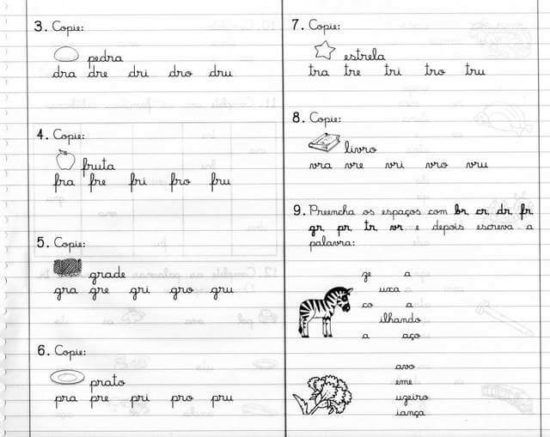 3. Copie:
pedra
dra dre dri dro dru
4. Copie:
fruta
fra fre fri fro fru
5. Copie:
grade
gra gre gri gro gru
6. Copie:
prato
pra pre pri pro pru
7. Copie:
estrela
tra tre tri tro tru
8. Copie:
livro
vra vre vri vro vru
9. Preencha os espaços com br, cr, dr, fr,
gr pr tr vr e depois escreva a
palavra:
ze a
uxa
co a
ilhando
a aço
avo
eme
ugeiro
iança